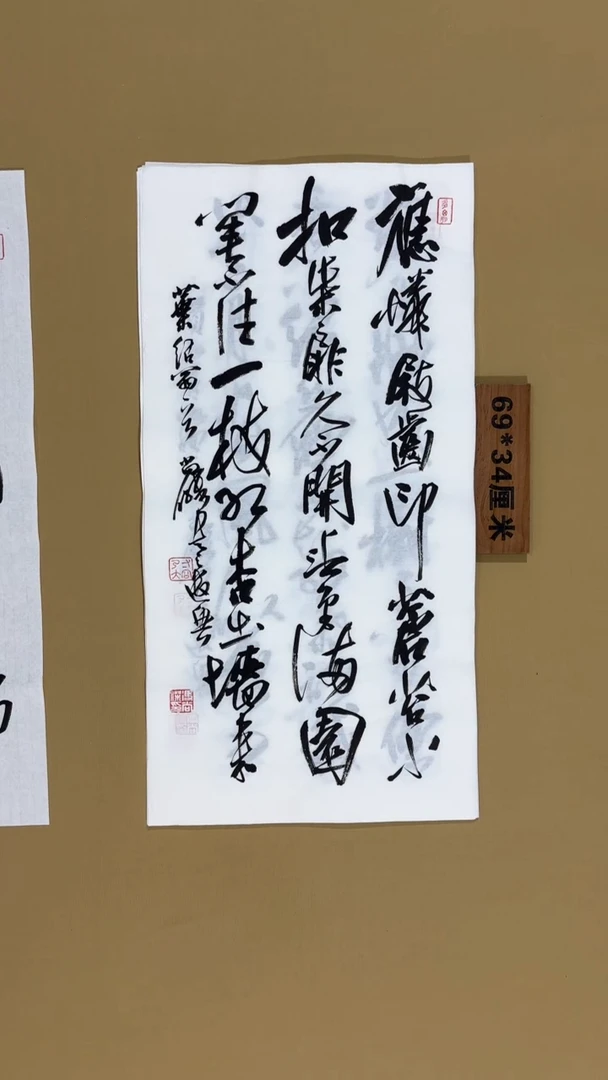 應憐屐齒印蒼苔小
扣柴扉久不開春色滿園
關不住一枝紅杏出墻來
葉紹翁詩
69*34厘米